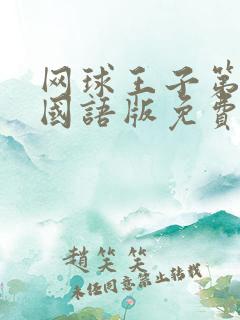 网球王子第
國語版免費
趙笑笑
未经同意禁止转载